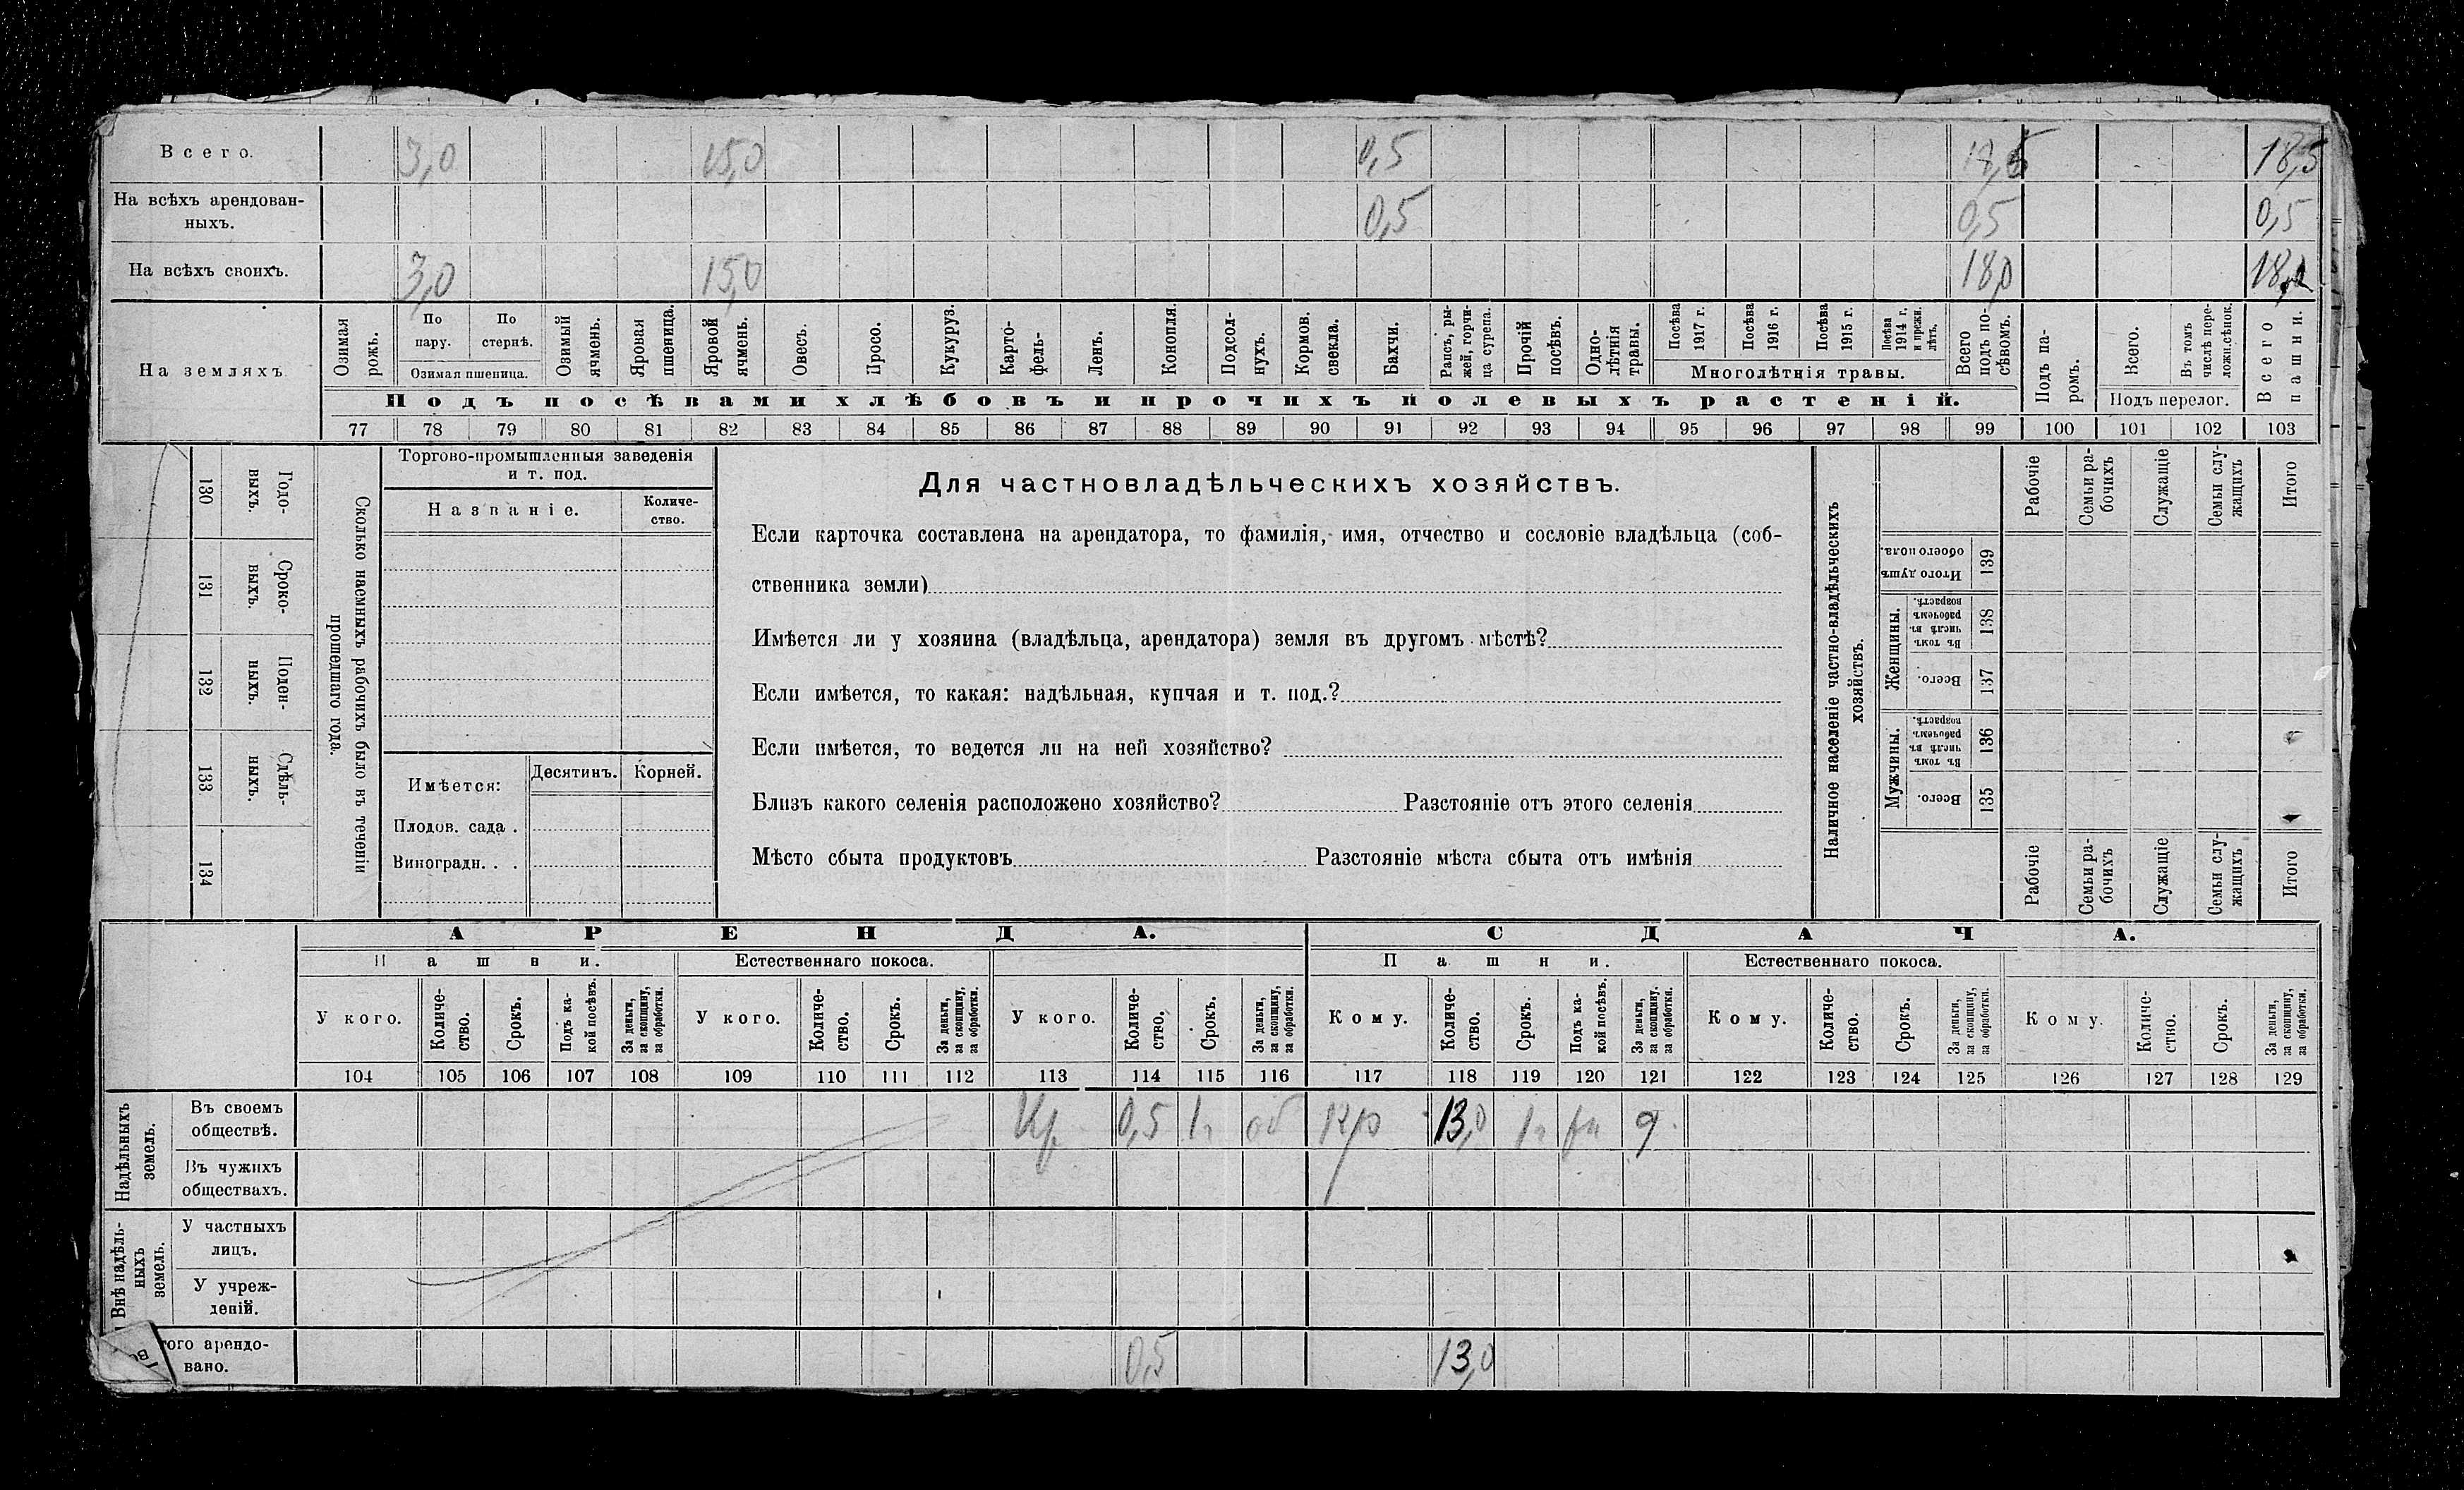 Всего. 3,0 15,0 0,5 18,5 18,5
На всѣхъ арендован-
ныхъ. 0,5 0,5 0,5
На всѣхъ своихъ. 3,0 15,0 18,0 18,0
На земляхъ
Озимая рожь.
По пару.
По стернѣ.
Озимая пшеница.
Озимый ячмень.
Яровая пшеница.
Яровой ячмень.
Овесъ.
Просо.
Кукуруз.
Карто-
фель.
Ленъ.
Конопля.
Подсол-
нухъ.
Кормов. свекла.
Бахчи.
Рапсъ, ры-
жей, горчи-
ца сурепа.
Прочій посѣвъ.
Одно-
лѣтнія травы.
Посѣва 1917 г.
Посѣва 1916 г.
Посѣва 1915 г.
Посѣва 1914 г. и прежн. лѣтъ.
Многолѣтнія травы.
Всего подъ по-
сѣвомъ.
Подъ па-
ромъ.
Всего.
Въ томъ числѣ пере-
ложн. сѣнок.
Подъ перелог.
Всего пашни.
Подъ посѣвами хлѣбовъ и прочихъ полевыхъ растеній.
77 78 79 80 81 82 83 84 85 86 87 88 89 90 91 92 93 94 95 96 97 98 99 100 101 102 103
130 Годо-
выхъ.
131 Сроко-
выхъ.
132 Поден-
ныхъ.
133 Сдѣль-
ныхъ.
134
Сколько наемныхъ рабочихъ было въ теченіи
прошедшаго года.
Торгово-промышленныя заведенія
и т. под.
Названіе.
Количе-
ство.
Имѣется:
Десятинъ.
Корней.
Плодов. сада .
Виноградн. . .
Для частновладѣльческихъ хозяйствъ.
Если карточка составлена на арендатора, то фамилія, имя, отчество и сословіе владѣльца (соб-
ственника земли)
Имѣется ли у хозяина (владѣльца, арендатора) земля въ другомъ мѣстѣ?
Если имѣется, то какая: надѣльная, купчая и т. под.?
Если имѣется, то ведется ли на ней хозяйство?
Близъ какого селенія расположено хозяйство? Разстояніе отъ этого селенія
Мѣсто сбыта продуктовъ Разстояніе мѣста сбыта отъ имѣнія
Наличное населеніе частно-владѣльческихъ
хозяйствъ.
Рабочіе
Семьи ра-
бочихъ
Служащіе
Семьи слу-
жащихъ
Итого
Итого душъ обоего пола. 139
Женщины.
Въ томъ числѣ въ рабочемъ возрастѣ. 138
Всего. 137
Мужчины.
Въ томъ числѣ въ рабочемъ возрастѣ. 136
Всего. 135
Рабочіе
Семьи ра-
бочихъ
Служащіе
Семьи слу-
жащихъ
Итого
АРЕНДА. СДАЧА.
Пашни. Естественнаго покоса. Пашни. Естественнаго покоса.
У кого.
Количе-
ство.
Срокъ.
Подъ ка-
кой посѣвъ.
За деньги, за скопщину, за обработки.
У кого.
Количе-
ство.
Срокъ.
За деньги, за скопщину, за обработки.
У кого.
Количе-
ство.
Срокъ.
За деньги, за скопщину, за обработки.
Кому.
Количе-
ство.
Срокъ.
Подъ ка-
кой посѣвъ.
За деньги, за скопщину, за обработки.
Кому.
Количе-
ство.
Срокъ.
За деньги, за скопщину, за обработки.
Кому.
Количе-
ство.
Срокъ.
За деньги, за скопщину, за обработки.
104 105 106 107 108 109 110 111 112 113 114 115 116 117 118 119 120 121 122 123 124 125 126 127 128 129
Надѣльныхъ
земель.
Въ своемъ
обществѣ. Кр 0,5 1г об Кр 13,0 1г д.
Въ чужихъ
обществахъ.
Внѣ надѣль-
ныхъ
земель.
У частныхъ
лицъ.
У учреж-
деній.
того арендо-
вано. 0,5 13,0